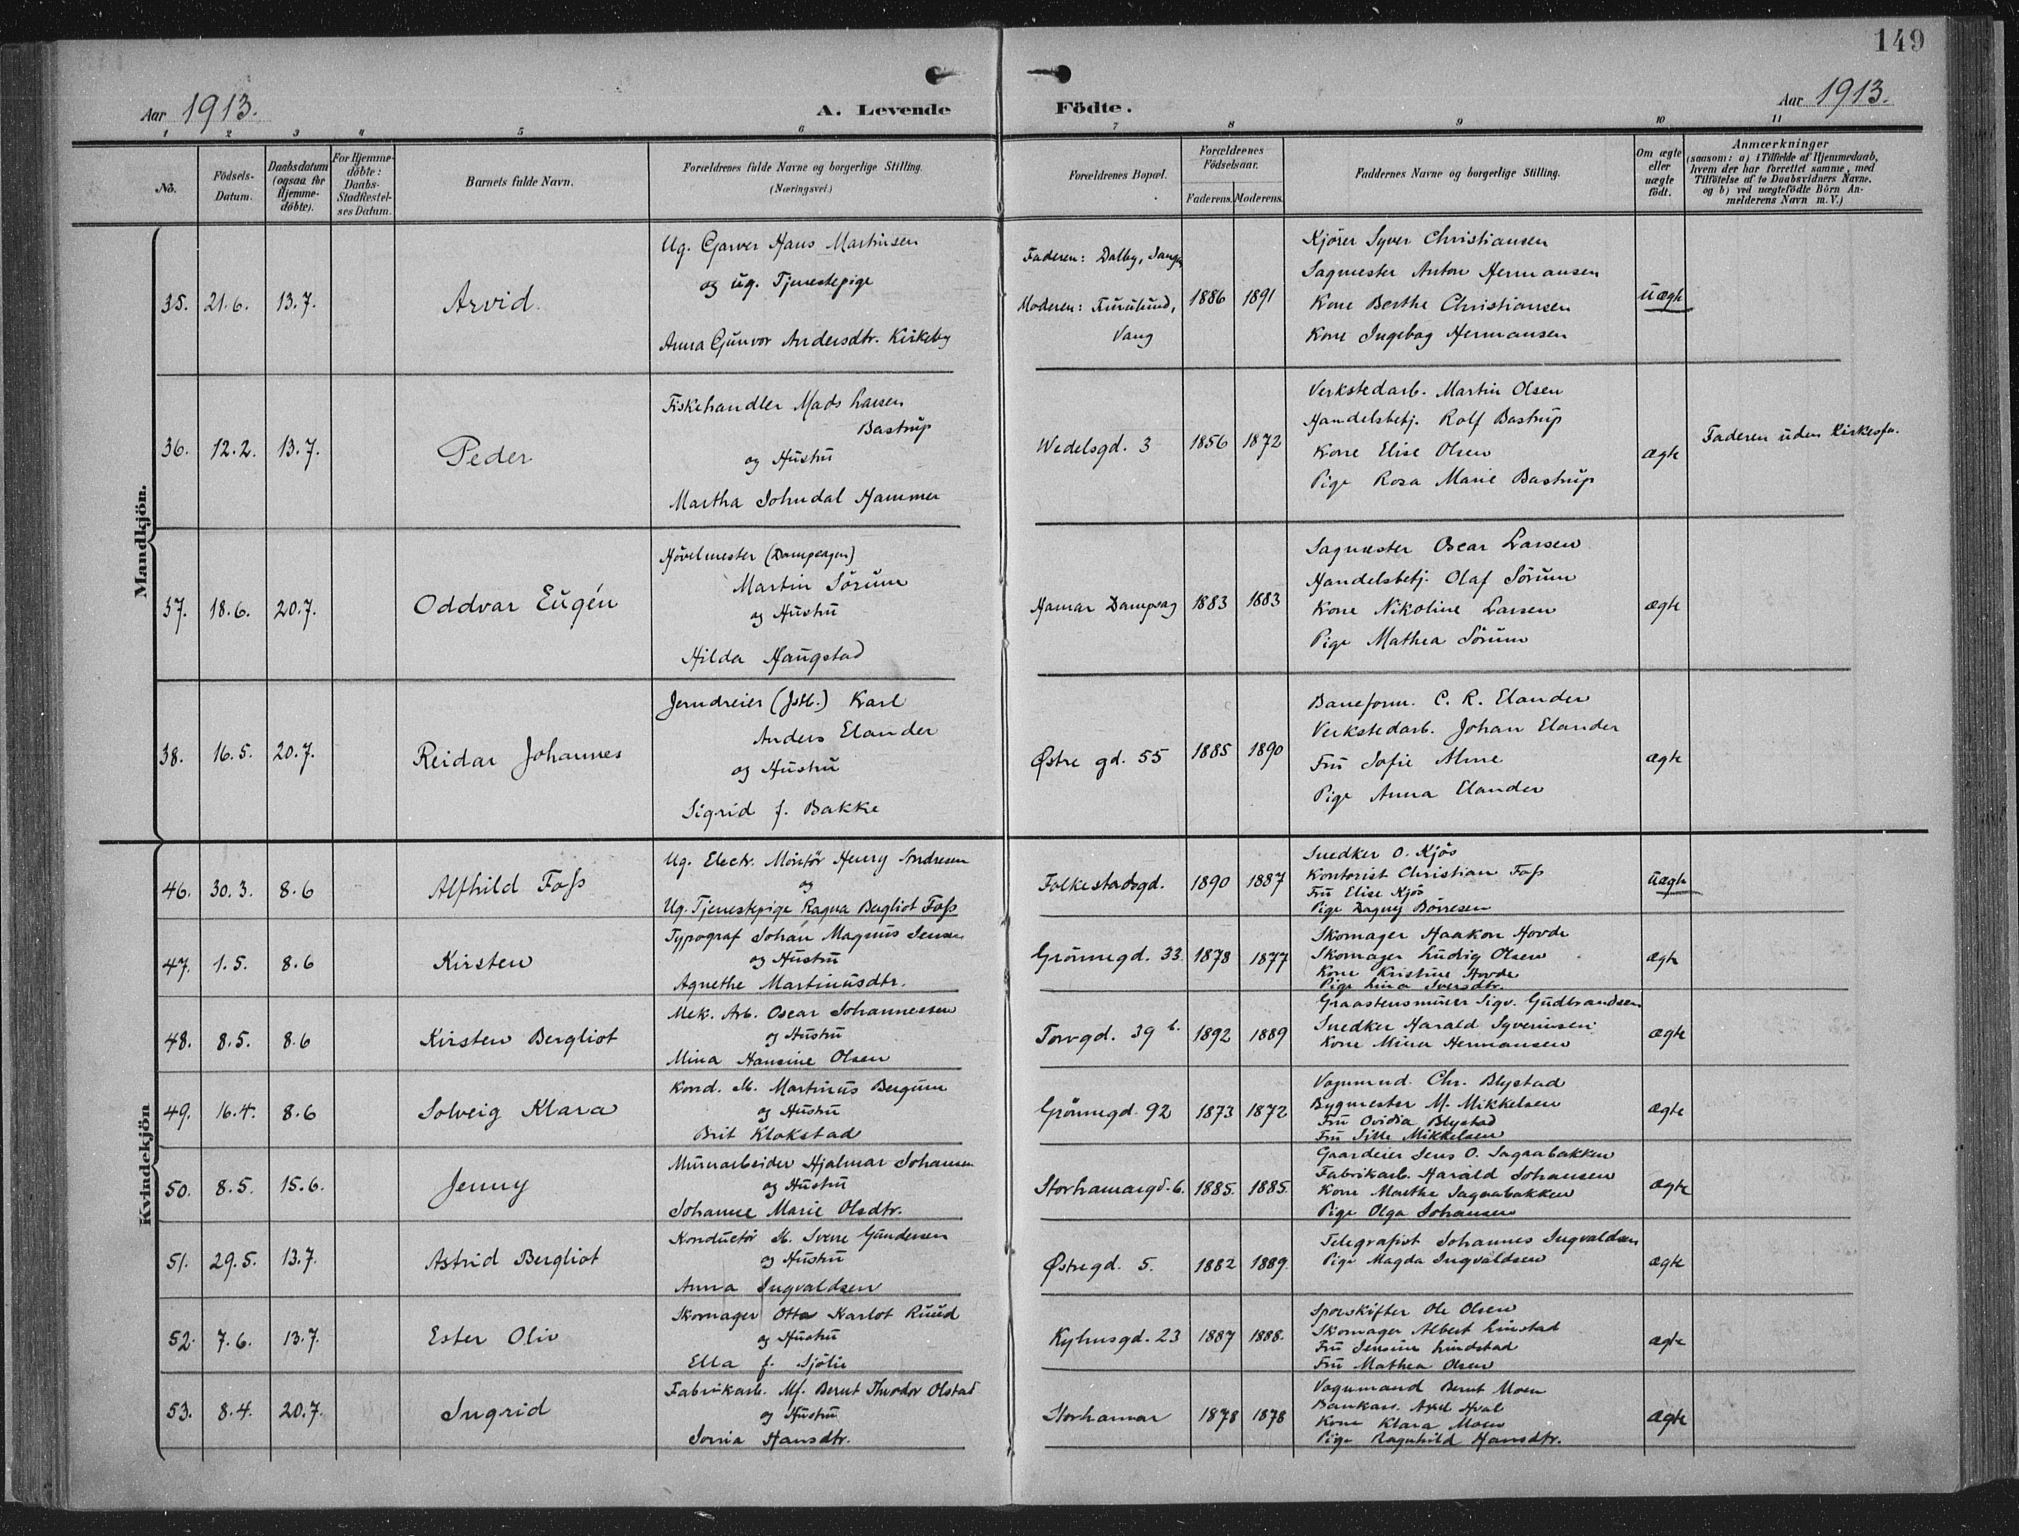 149
Aar 1913.
A. Levende Födte.
Aar 1913.
1 2 3 4 5 6 7 8 9 10 11
No.
Födsels-Datum.
Daabsdatum (ogsaa for Hjemme-döbte).
For Hjemme-döbte: Daabs-Stadfæstel-ses Datum.
Barnets fulde Navn.
Forældrenes fulde Navne og borgerlige Stilling. (Næringsvei.)
Forældrenes Bopæl.
Forældrenes Födselsaar.
Faderens. Moderens.
Faddernes Navne og borgerlige Stilling.
Om ægte eller uægte födt.
Anmærkninger
(saasom: a) i Tilfælde af Hjemmedaab,
hvem der har forrettet samme, med
Tilföielse af to Daabsvidners Navne.
og b) ved uægtefödte Börn An-
melderens Navn m. V.)
Mandkjön.
35. 21.6. 13.7. Arvid.
Ug. Garver Hans Martinsen
og ug. Tjenestepige
Anna Gunvor Andersdtr. Kirkeby
Faderen: Dalby, Vang
Moderen: Furulund,
Vang
1886 1891
Kjører Syver Christiansen
Sagmester Anton Hermansen
Kone Berthe Christiansen
Kone Ingebog Hermansen
uægte
36. 12.2. 13.7. Peder
Fiskehandler Mads Larsen
Bastrup
og Hustru
Martha Johndal Hammer
Wedelsgd. 3 1856 1872
Verkstedarb. Martin Olsen
Handelsbetj. Rolf Bastrup
Kone Elise Olsen
Pige Rosa Marie Bastrup
ægte
Faderen uden Kirkesfu.
37. 18.6. 20.7. Oddvar Eugén
Høvelmester (Dampsagen)
Martin Sørum
og Hustru
Hilda Haugstad
Hamar Dampsag 1883 1883
Sagmester Oscar Larsen
Handelsbetj. Olaf Sørum
Kone Nikoline Larsen
Pige Mathea Sørum
ægte
38. 16.5. 20.7. Reidar Johannes
Jerndreier (Jstb.) Karl
Anders Elander
og Hustru
Sigrid f. Bakke
Østre gd. 55 1885 1890
Baneform. C. R. Elander
Verkstedarb. Johan Elander
Fru Sofie Alme
Pige Anna Elander
ægte
Kvindekjön
46. 30.3. 8.6 Alfhild Foss
Ug. Electr. Montør Henry Andresen
og
Ug. Tjenestepige Ragna Bergliot Foss
Folkestadsgd. 1890 1887
Snedker O. Kjøs
Kontorist Christian Foss
Fru Elise Kjøs
Pige Dagny Børresen
uægte
47. 1.5. 8.6 Kirsten
Typograf Johan Magnus Jensen
og Hustru
Agnethe Martinusdtr.
Grønnegd. 33. 1878 1877
Skomager Haakon Hovde
Skomager Ludvig Olsen
Kone Kristine Hovde
Pige Lina Iversdtr.
ægte
48. 8.5. 8.6 Kirsten Bergliot
Mek. Arb. Oscar Johannessen
og Hustru
Mina Hansine Olsen
Torvgd. 39 b. 1892 1889
Graastensmurer Sigv. Gudbrandsen
Snedker Harald Syversen
Kone Mina Hermansen
ægte
49. 16.4. 8.6 Solveig Klara
Kond. M. Martinus Bergum
og Hustru
Brit Klokstad
Grønnegd. 92 1873 1872
Vognmnd. Chr. Blystad
Bygmester M. Mikkelsen
Fru Ovidia Blystad
Fru Sille Mikkelsen
ægte
50. 8.5. 15.6. Jenny
Murarbeider Hjalmar Johansen
og Hustru
Johanne Marie Olsdtr.
Storhamargd. 6. 1885. 1885.
Gaardeier Jens O. Sagaabakken
Fabrikarb. Harald Johansen
Kone Marthe Sagaabakken
Pige Olga Johansen
ægte
51. 29.5. 13.7. Astrid Bergliot
Konductør M. Sverre Gundersen
og Hustru
Anna Ingvaldsen
Østregd. 5. 1882 1889.
Telegrafist Johannes Ingvaldsen
Pige Magda Ingvaldsen
ægte
52. 7.6. 13.7. Ester Oliv
Skomager Otto Karlot Ruud
og Hustru
Ella f. Sjølie
Kyhusgd. 23 1887 1888.
Sporskifter Ole Olsen
Skomager Albert Linstad
Fru Jensine Lindstad
Fru Mathea Olsen
ægte
53. 8.4. 20.7. Ingrid
Fabrikarb. Mf. Bernt Theodor Olstad
og Hustru
Sonia Hansdtr.
Storhamar 1878 1878
Vognmand Bernt Moen
Bankass. Axel Hval
Kone Klara Moen
Pige Ragnhild Hansdtr.
ægte